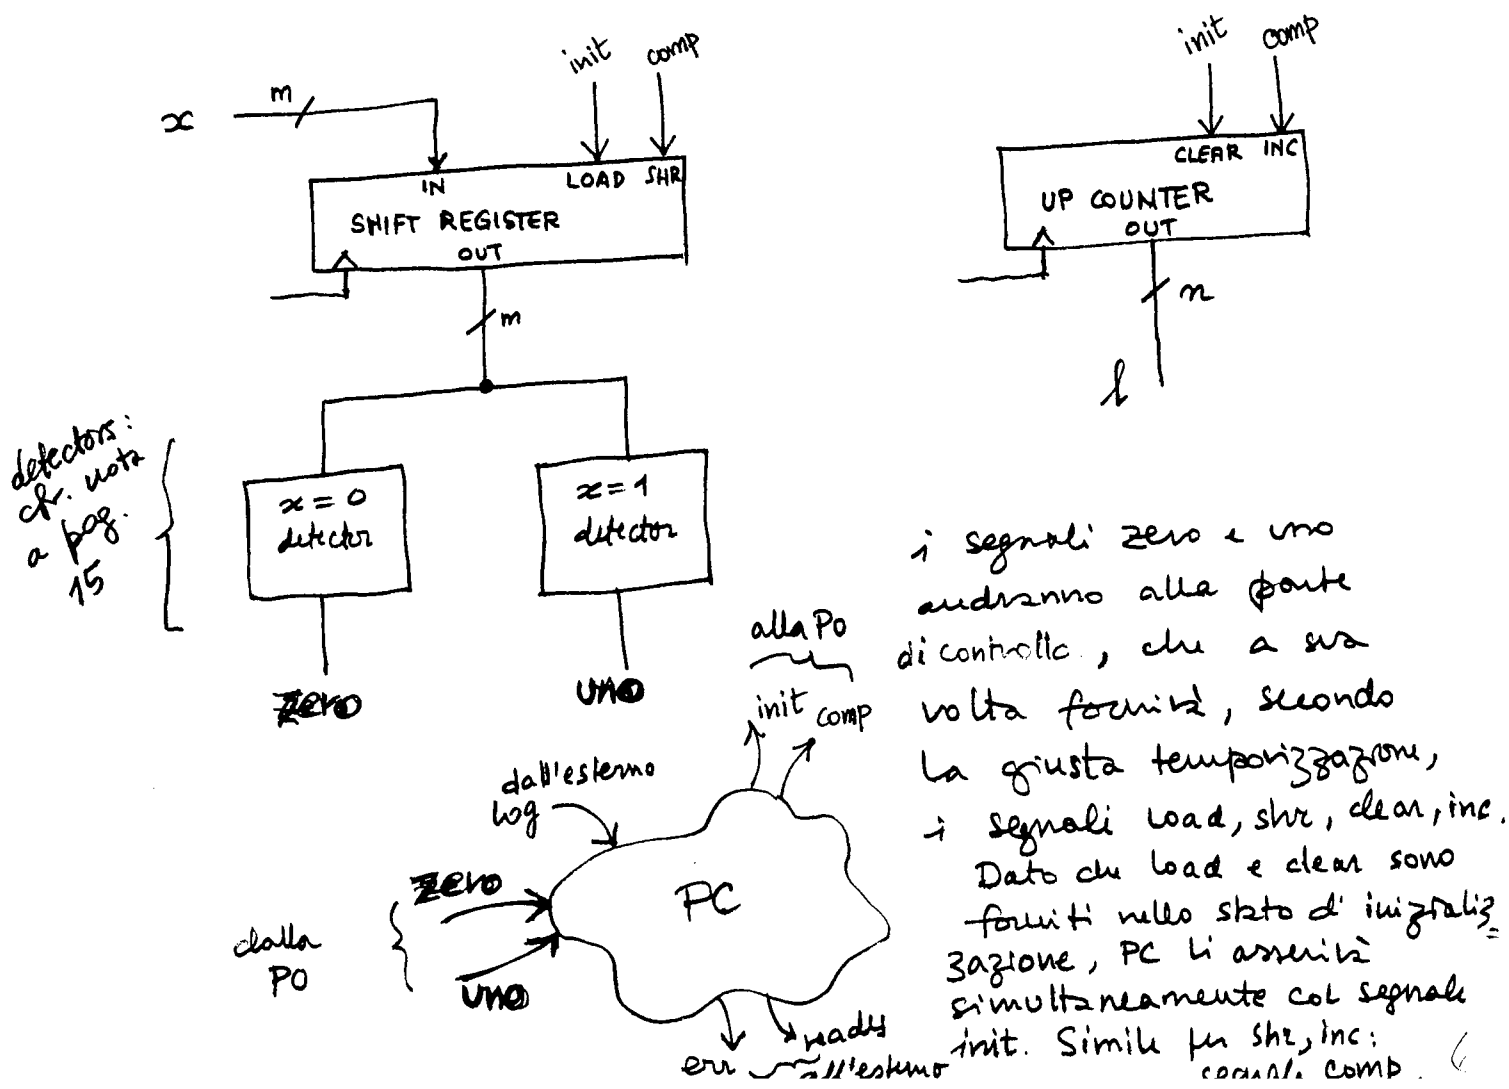 x
m
init
comp
IN
LOAD
SHR
SHIFT REGISTER
OUT
m
init
comp
CLEAR
INC
UP COUNTER
OUT
n
l
detectors:
cfr. nota
a pag.
15
x = 0
detector
x = 1
detector
zero
uno
alla PO
init
comp
dall'esterno
log
zero
uno
dalla
PO
PC
err
ready
all'esterno
i segnali zero e uno
andranno alla parte
di controllo, che a sua
volta fornirà, secondo
la giusta temporizzazione,
i segnali load, shr, clear, inc.
Dato che load e clear sono
forniti nello stato d' inizializ=
zazione, PC li asserirà
simultaneamente col segnale
init. Simile per shr, inc:
segnale comp.